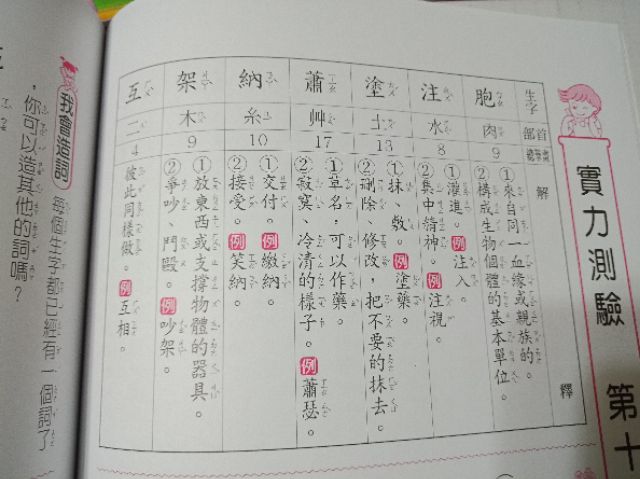 實力測驗 第十
生字 部首 總筆畫 解釋
胞 肉 9
①來自同一血緣或親族的。
②構成生物個體的基本單位。
注 水 8
①灌進。例注入。
②集中精神。例注視。
塗 土 13
①抹、敷。例塗藥。
②刪除、修改,把不要的抹去。
蕭 艸 17
①草名,可以作藥。
②寂寞、冷清的樣子。例蕭瑟。
納 糸 10
①交付。例繳納。
②接受。例笑納。
架 木 9
①放東西或支撐物體的器具。
②爭吵、鬥毆。例吵架。
互 二 4
彼此同樣做。例互相。
我會造詞 每個生字都已經有一個詞了
,你可以造其他的詞嗎?